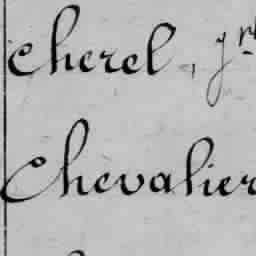 Cherel, jr
Chevalier